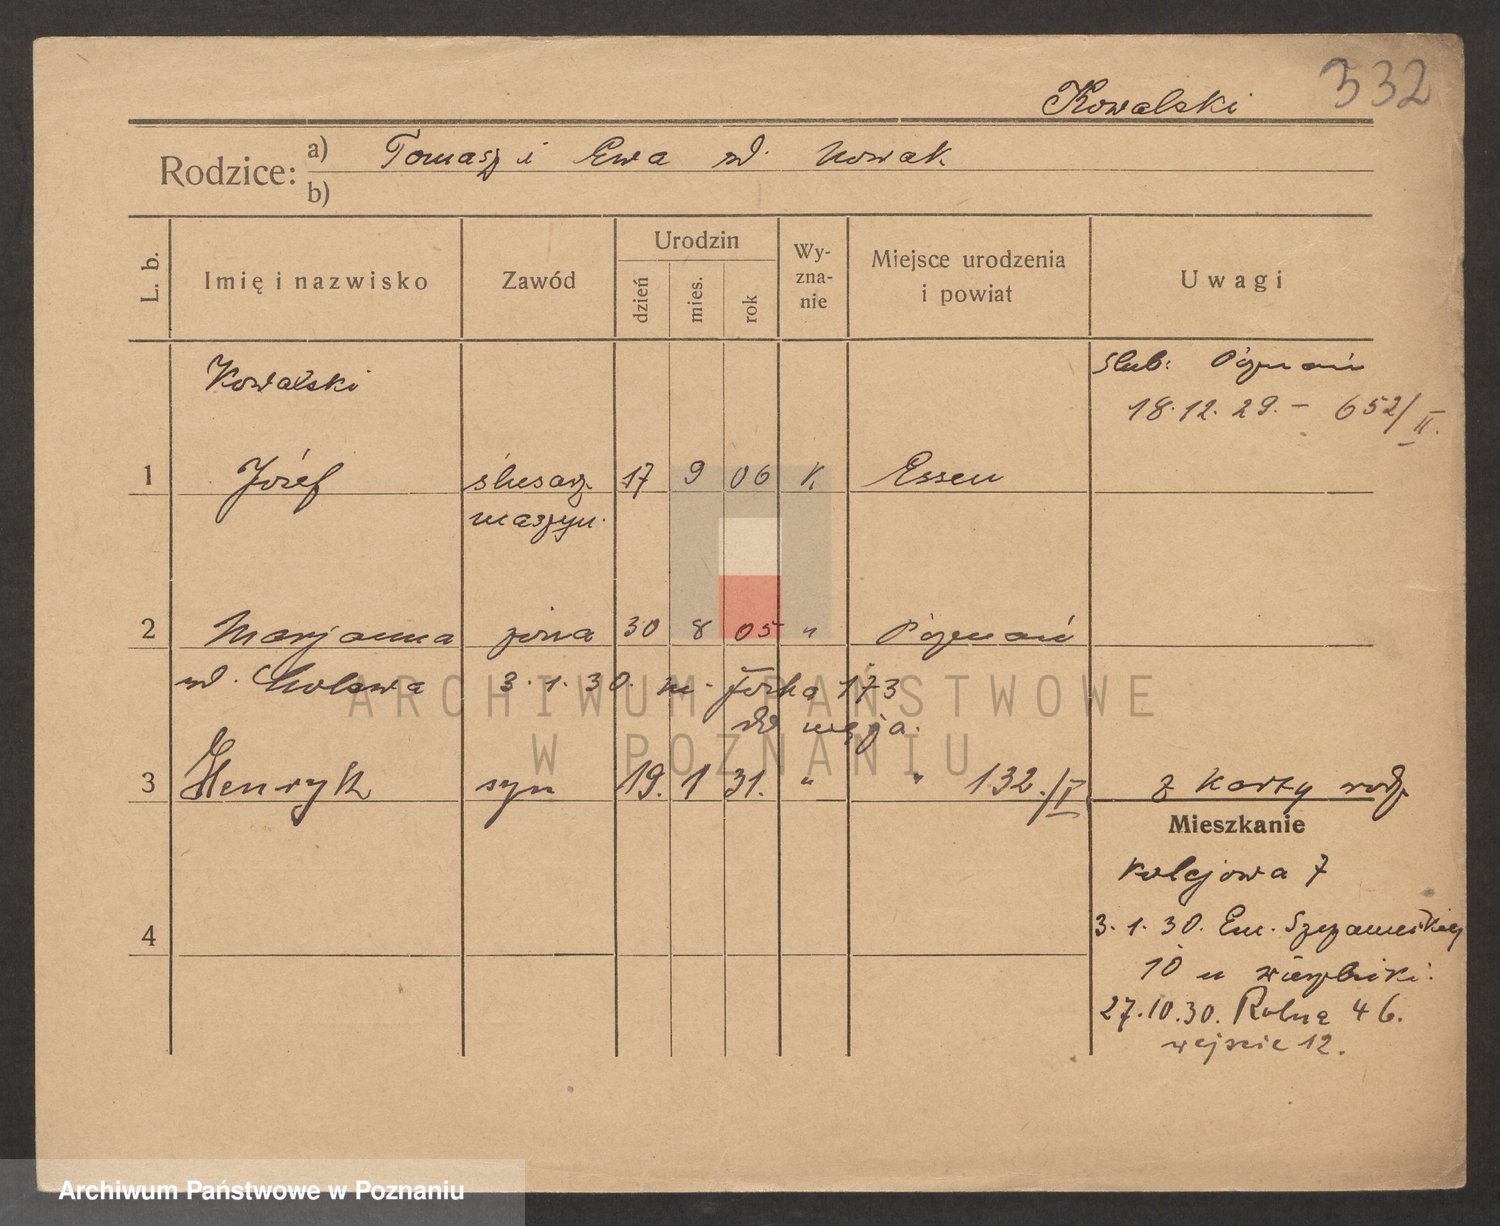 332
Kowalski
Rodzice: a) Tomasz i Ewa zd. Nowak
b)
L. b.
Imię i nazwisko
Zawód
Urodzin
dzień
mies.
rok
Wy-
zna-
nie
Miejsce urodzenia
i powiat
Uwagi
Kowalski
ślub: Poznań
18.12.29. – 652/II.
1 Józef ślusarz 17 9 06 K. Essen
maszyn.
2 Marjanna żona 30 8 05 " Poznań
3.1.30. 173
do męża.
3 Henryk syn 19. 1 31. " " 132./II z karty rodz
Mieszkanie
Kolejowa 7
4
3.1.30. Em. Szczanieckiej
10 u Wierzbicki.
27.10.30. Rolna 46.
wejście 12.
ARCHIWUM PAŃSTWOWE
W POZNANIU
Archiwum Państwowe w Poznaniu